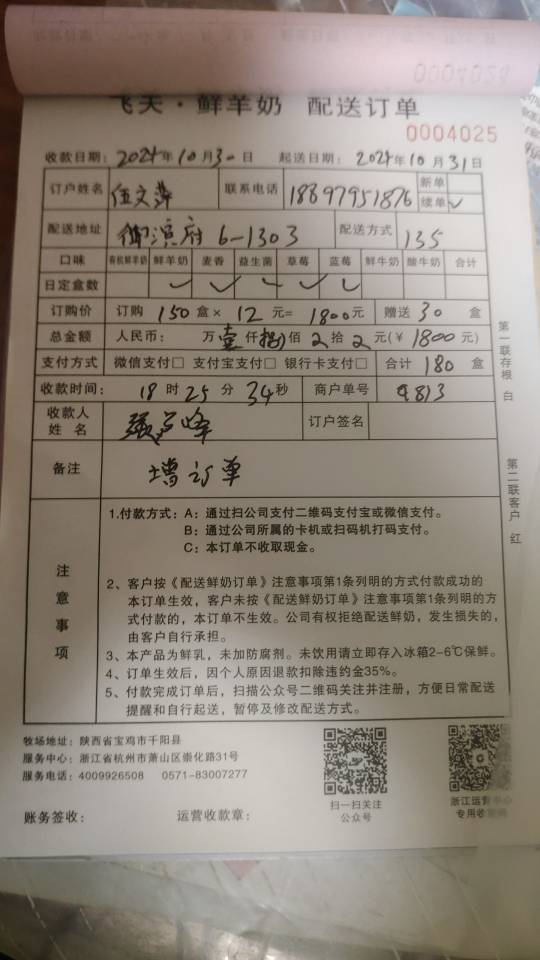 0004024
飞天·鲜羊奶 配送订单
0004025
收款日期：2024年10月30日 起送日期：2024年10月31日
订户姓名 伍文萍 联系电话 18897951876 新单 续单✓
配送地址 御滨府 6-1303 配送方式 135
口味 有机鲜羊奶 鲜羊奶 麦香 益生菌 草莓 蓝莓 鲜牛奶 酸牛奶 合计
日定盒数 ✓ ✓ ✓ ✓ ✓
订购价 订购 150 盒× 12 元= 1800元 赠送 30 盒
总金额 人民币： 万 壹 仟 捌 佰 拾 元(￥ 1800 元)
支付方式 微信支付□ 支付宝支付□ 银行卡支付□ 合计 180 盒
收款时间： 18 时 25 分 34 秒 商户单号 9813
收款人姓名 张 峰 订户签名
备注 增订单
注意事项
1.付款方式：A：通过扫公司支付二维码支付宝或微信支付。
B：通过公司所属的卡机或扫码机打码支付。
C：本订单不收取现金。
2、客户按《配送鲜奶订单》注意事项第1条列明的方式付款成功的
本订单生效，客户未按《配送鲜奶订单》注意事项第1条列明的方
式付款的，本订单不生效。公司有权拒绝配送鲜奶，发生损失的，
由客户自行承担。
3、本产品为鲜乳，未加防腐剂。未饮用请立即存入冰箱2-6℃保鲜。
4、订单生效后，因个人原因退款扣除违约金35%。
5、付款完成订单后，扫描公众号二维码关注并注册，方便日常配送
提醒和自行起送，暂停及修改配送方式。
第一联存根 白
第二联客户 红
牧场地址：陕西省宝鸡市千阳县
服务中心：浙江省杭州市萧山区崇化路31号
服务电话：4009926508 0571-83007277
扫一扫关注
公众号
浙江运营中心
专用收
账务签收： 运营收款章：